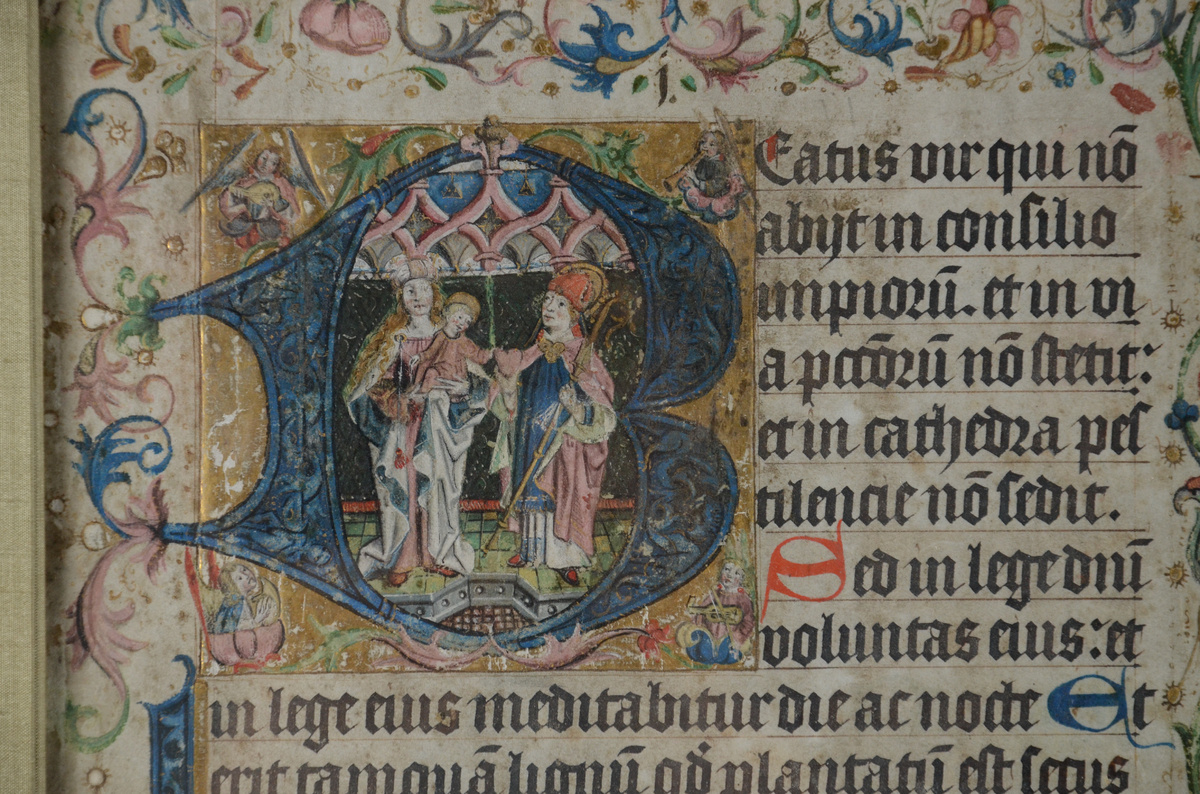 j.
Beatus vir qui nō
abijt in consilio
impiorū. et in vi
a pctōrū nō stetit:
et in cathedra pes
tilencie nō sedit.
Sed in lege dnī
voluntas eius: et
in lege eius meditabitur die ac nocte Et
erit tamquā lignū qd̓ plantatū est secus